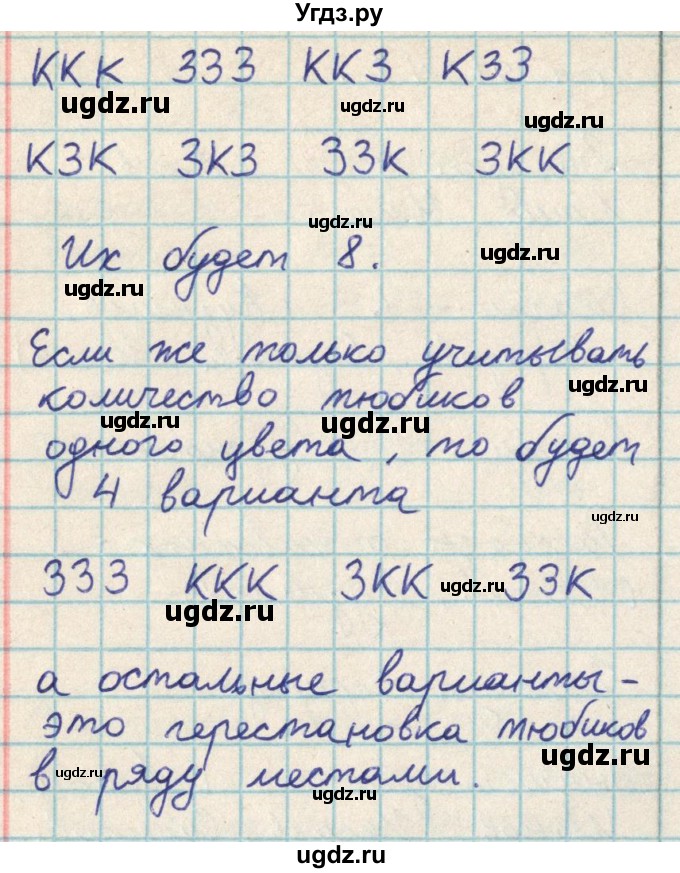 Угдз.ру
ККК ЗЗЗ ККЗ КЗЗ
ugdz.ru ugdz.ru ugdz.ru
КЗК ЗКЗ ЗЗК ЗКК
ugdz.ru
Их будет 8.
ugdz.ru ugdz.ru
Если же только учитывать
ugdz.ru
количество тюбиков
ugdz.ru ugdz.ru
одного цвета, то будет
4 варианта
ugdz.ru
ЗЗЗ ККК ЗКК ЗЗК
ugdz.ru ugdz.ru
а остальные варианты -
это перестановка тюбиков
ugdz.ru
в ряду местами.
ugdz.ru ugdz.ru
ugdz.ru